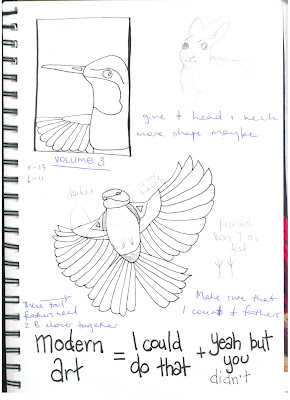 give + head + neck
more shape maybe
r-15
L-11
VOLUME 3
darker
research
how 2 do
feet
These tail
feathers need
2 B closer together
Make sure that
I count + feathers
modern art = I could do that + yeah but you didn't